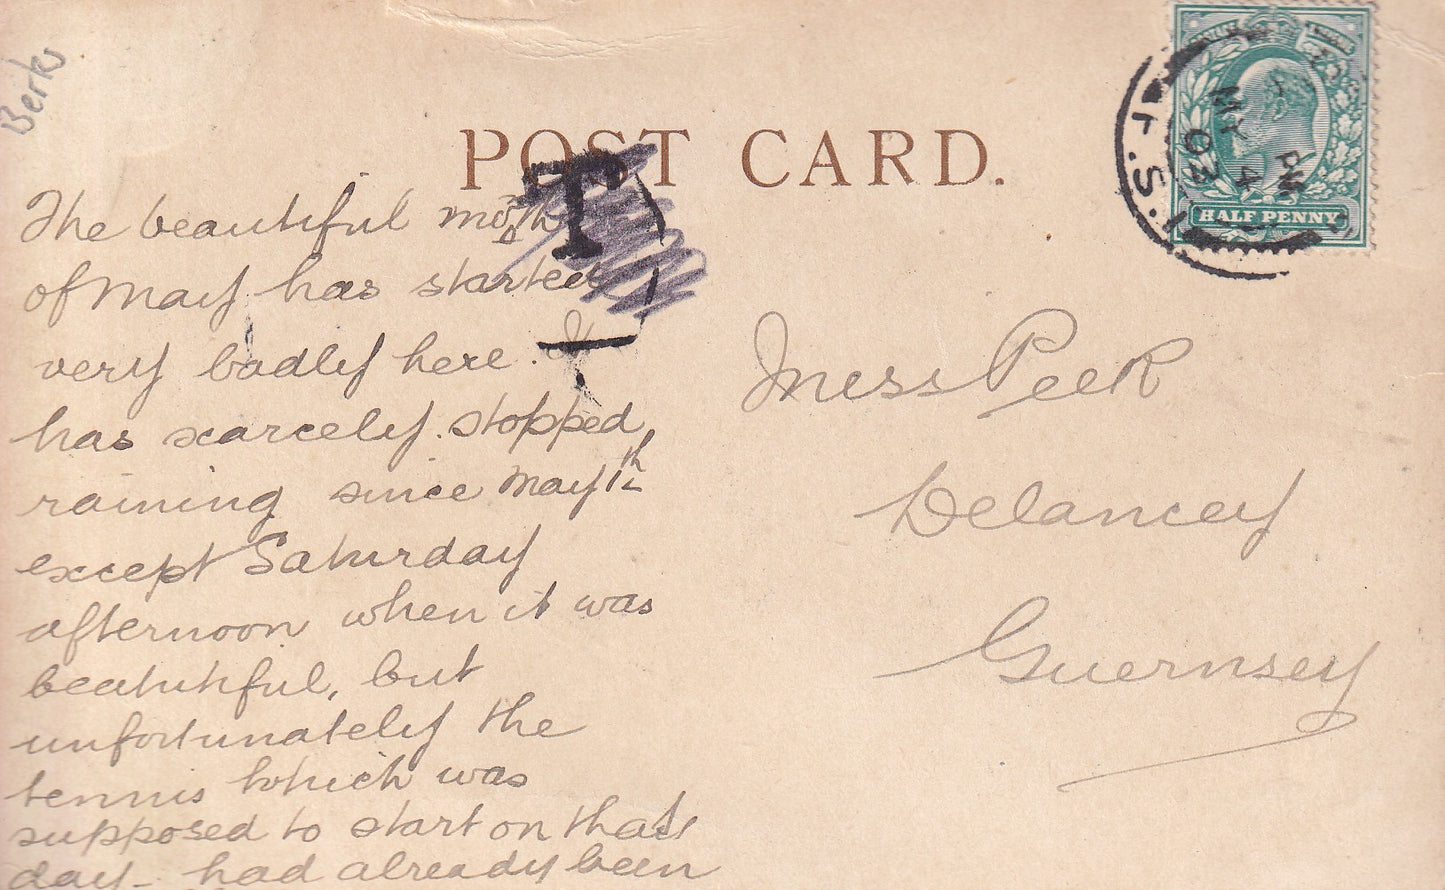 Berks
POST CARD.
T
HALF PENNY
MY 4
PM
The beautiful moth
of May has started
very badly here.
has scarcely stopped
raining since May 1th
except Saturday
afternoon when it was
beatutiful, but
unfortunately the
tennis which was
supposed to start on that
day - had already been
Miss Peek
Delancey
Guernsey